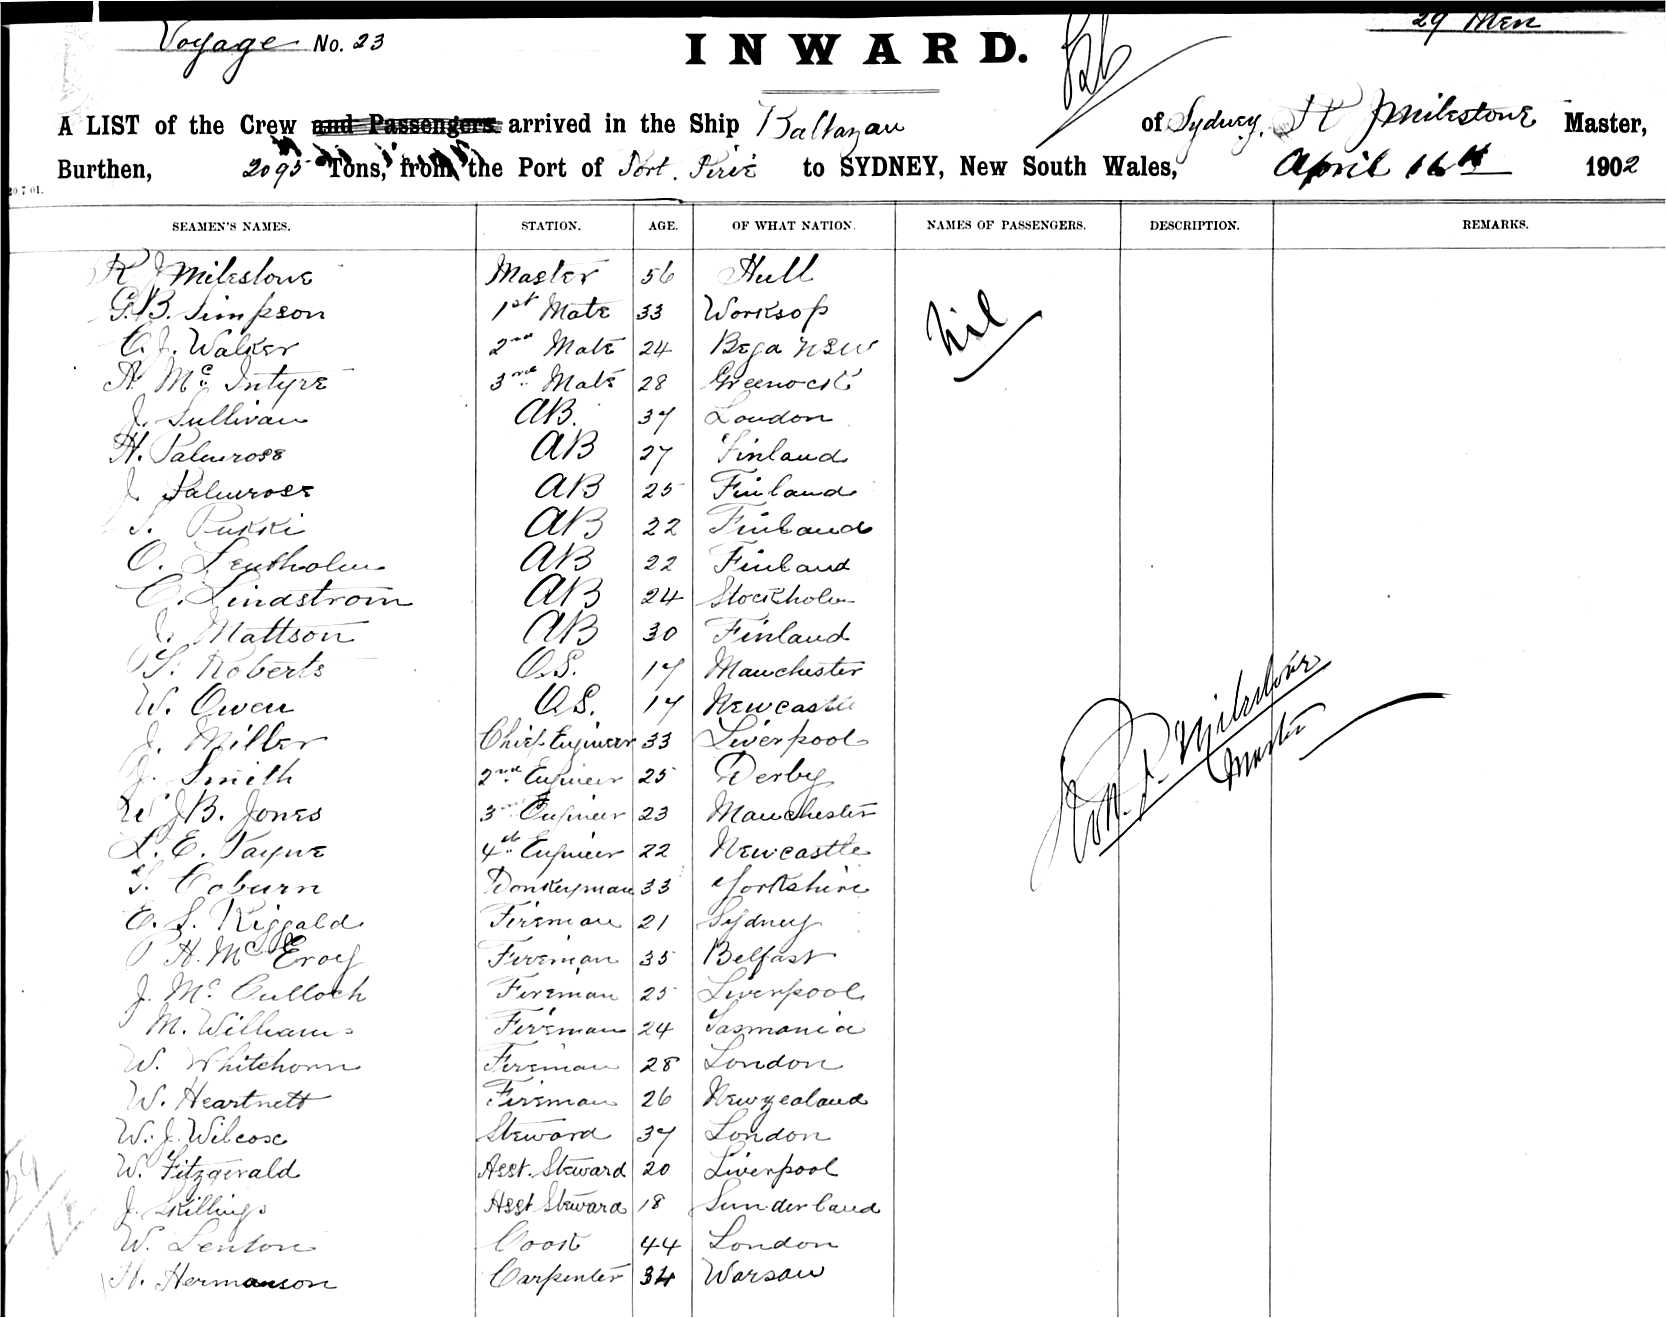 Voyage No. 23
INWARD.
29 Men
A LIST of the Crew and Passengers arrived in the Ship Baltazan of Sydney, Milestone Master,
Burthen, 2095 Tons, from the Port of Port. Pirie to SYDNEY, New South Wales, April 16th 1902
20.7.01.
SEAMEN'S NAMES. STATION. AGE. OF WHAT NATION. NAMES OF PASSENGERS. DESCRIPTION. REMARKS.
R J Milestone Master 56 Hull
G.B. Simpson 1st Mate 33 Worksop
C.J. Walker 2nd Mate 24 Bega NSW
A Mc Intyre 3rd Mate 28 Greenock
J. Sullivan AB. 37 London
H. Palmross AB 27 Finland
J Palmross AB 25 Finland
Pukki AB 22 Finland
O. Lentholm AB 22 Finland
C. Lindstrom AB 24 Stockholm
J. Mattson AB 30 Finland
Roberts O.S. 17 Manchester
W. Owen O.S. 17 Newcastle
J. Miller Chief Engineer 33 Liverpool
J. Smith 2nd Engineer 25 Derby
W J B. Jones 3rd Engineer 23 Manchester
L. E. Payne 4th Engineer 22 Newcastle
Coburn Donkeyman 33 Yorkshire
E. S. Riggald Fireman 21 Sydney
H. Mc Elroy Fireman 35 Belfast
J. Mc Culloch Fireman 25 Liverpool
M. Williams Fireman 24 Tasmania
W. Whitehorn Fireman 28 London
W. Heartnett Fireman 26 Newzealand
W. J. Wilcox Steward 37 London
W. Fitzgerald Asst. Steward 20 Liverpool
J. Skillings Asst Steward 18 Sunderland
W. Lenton Cook 44 London
H. Hermanson Carpenter 34 Warsaw
Nil
Milestone
Master